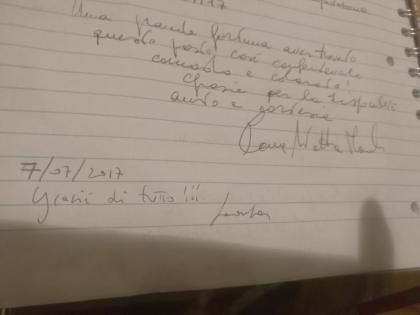 17
Una grande fortuna aver trovato
questo posto così confortevole
comodo e curato!
Grazie per la disponibilità
aiuto e
7/07/2017
Grazie di tutto!!!